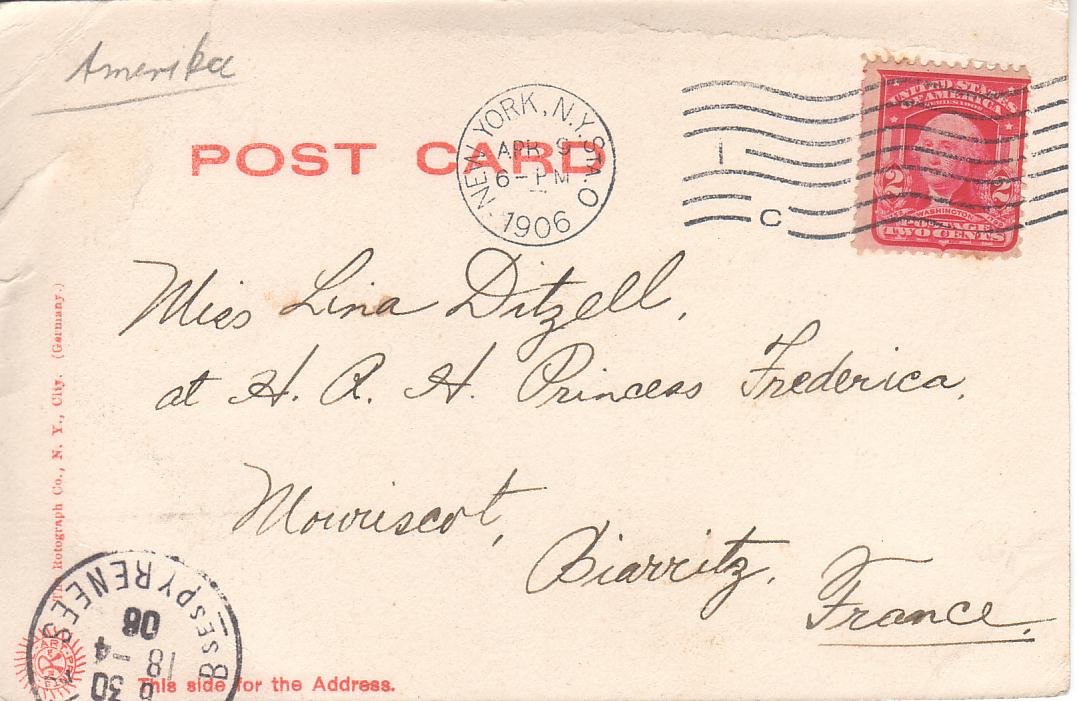 Amerika
POST CARD
NEW YORK, N.Y. STA. O
APR 9
6-PM
1906
1
C
UNITED STATES
OF AMERICA
SERIES 1902
2 2
WASHINGTON
TWO CENTS
Miss Lina Ditzell,
at H. R. H. Princess Frederica,
Mouriscot,
Biarritz,
France.
The Rotograph Co., N. Y., City. (Germany.)
BSES PYRENEES
30
18-4
06
This side for the Address.